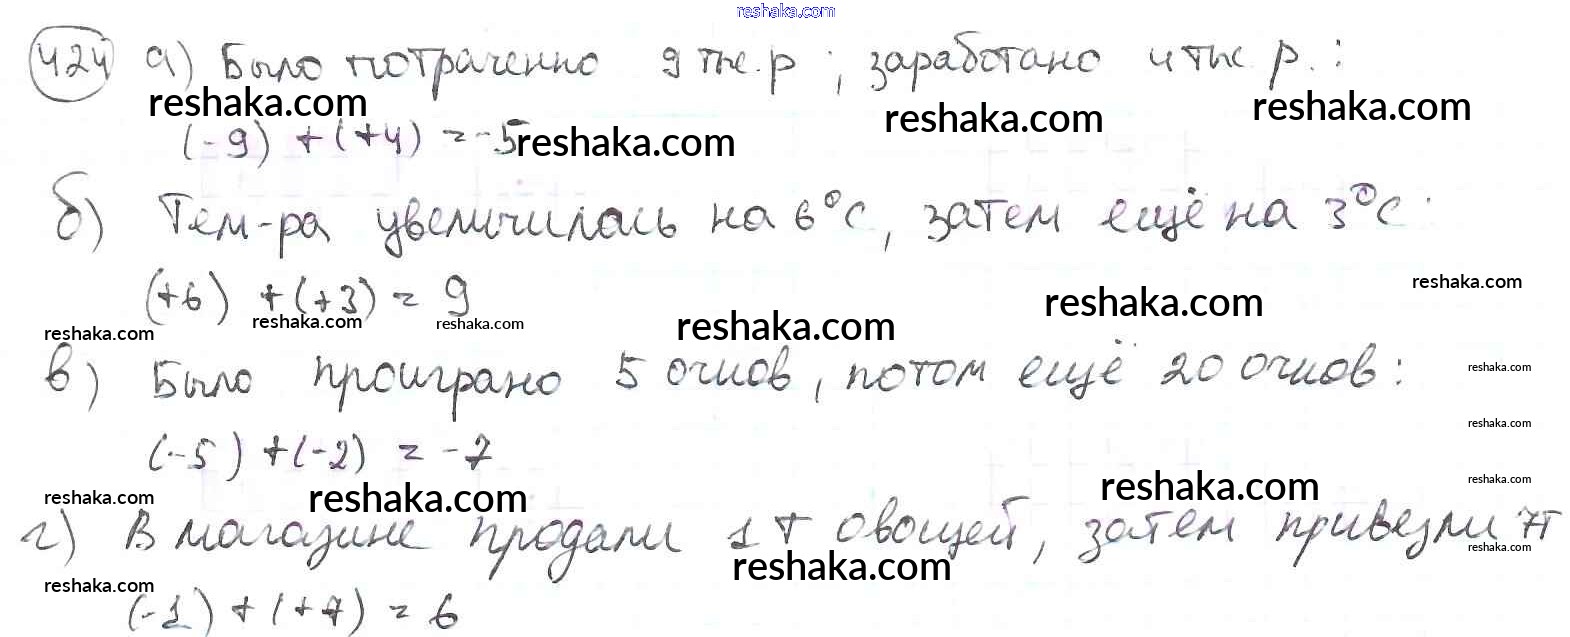 reshaka.com
424 а) Было потраченно 9 тыс. р ; заработано 4 тыс. р. :
reshaka.com reshaka.com reshaka.com
(-9) + (+4) = -5 reshaka.com
б) Тем-ра увеличилась на 6°С, затем ещё на 3°С :
(+6) + (+3) = 9
reshaka.com reshaka.com reshaka.com reshaka.com reshaka.com reshaka.com
в) Было проиграно 5 очков, потом ещё 20 очков :
reshaka.com
reshaka.com
(-5) + (-2) = -7
reshaka.com reshaka.com reshaka.com reshaka.com
г) В магазине продали 1 т овощей, затем привезли 7т
reshaka.com reshaka.com reshaka.com
(-1) + (+7) = 6